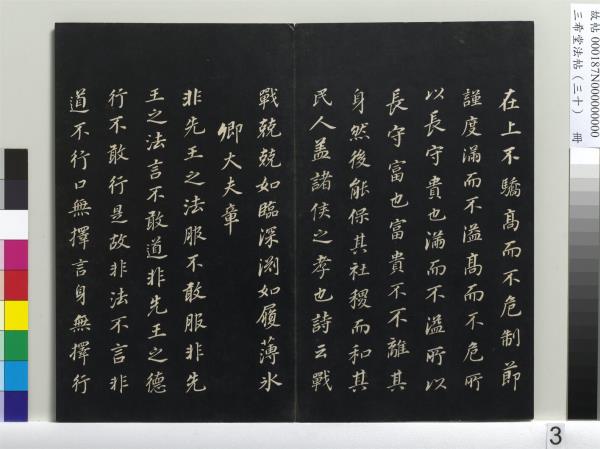 在上不驕髙而不危制節
謹度滿而不溢髙而不危所
以長守貴也滿而不溢所以
長守富也富貴不不離其
身然後能保其社稷而和其
民人盖諸侯之孝也詩云戰
戰兢兢如臨深淵如履薄氷
卿大夫章
非先王之法服不敢服非先
王之法言不敢道非先王之德
行不敢行是故非法不言非
道不行口無擇言身無擇行
故帖 000187N000000000
三希堂法帖（三十） 冊
3